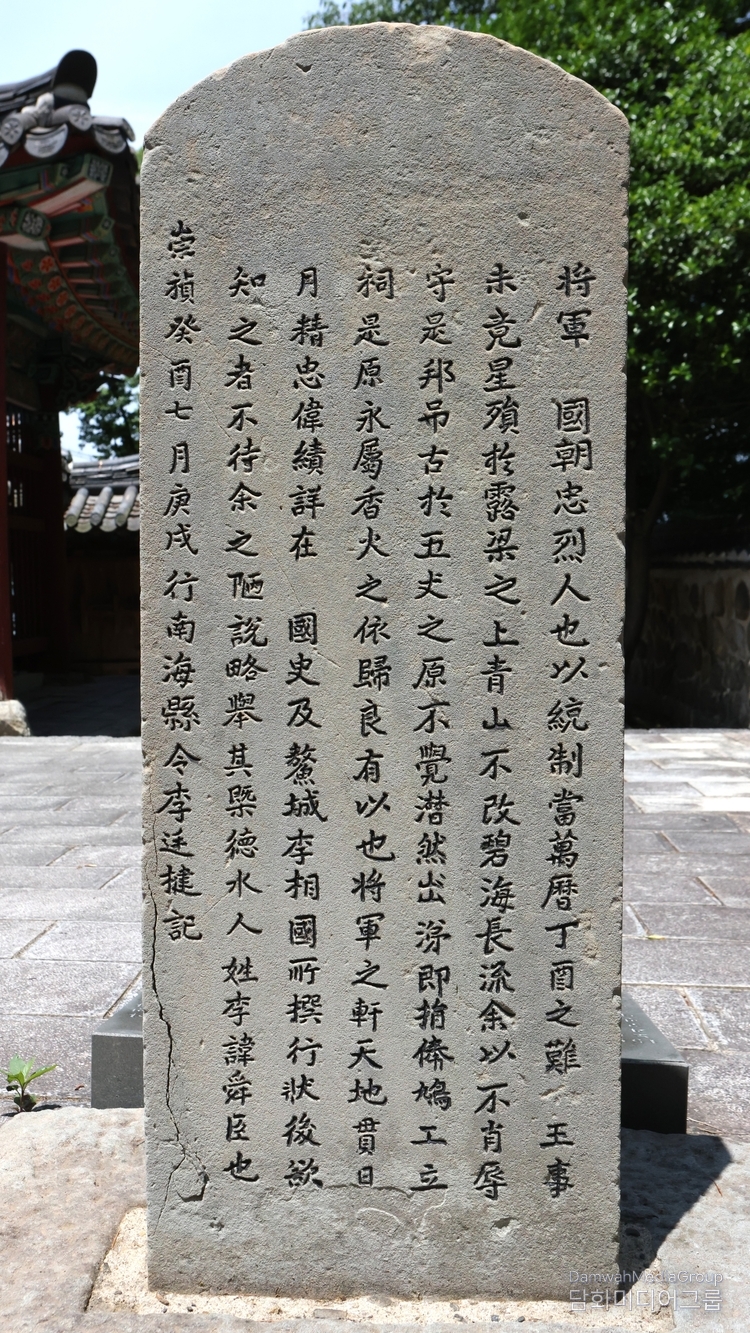 将軍 國朝忠烈人也以統制當萬曆丁酉之難 王事
未竟星殞於露梁之上青山不改碧海長流余以不肖辱
守是邦吊古於五丈之原不覺潸然出涕即捐俸鳩工立
祠是原永屬香火之依歸良有以也将軍之軒天地貫日
月精忠偉績詳在 國史及鰲城李相國所撰行狀後欲
知之者不待余之陋說略舉其槩德水人姓李諱舜臣也
崇禎癸酉七月庚戌行南海縣令李廷揵記
DamwahMediaGroup
담화미디어그룹